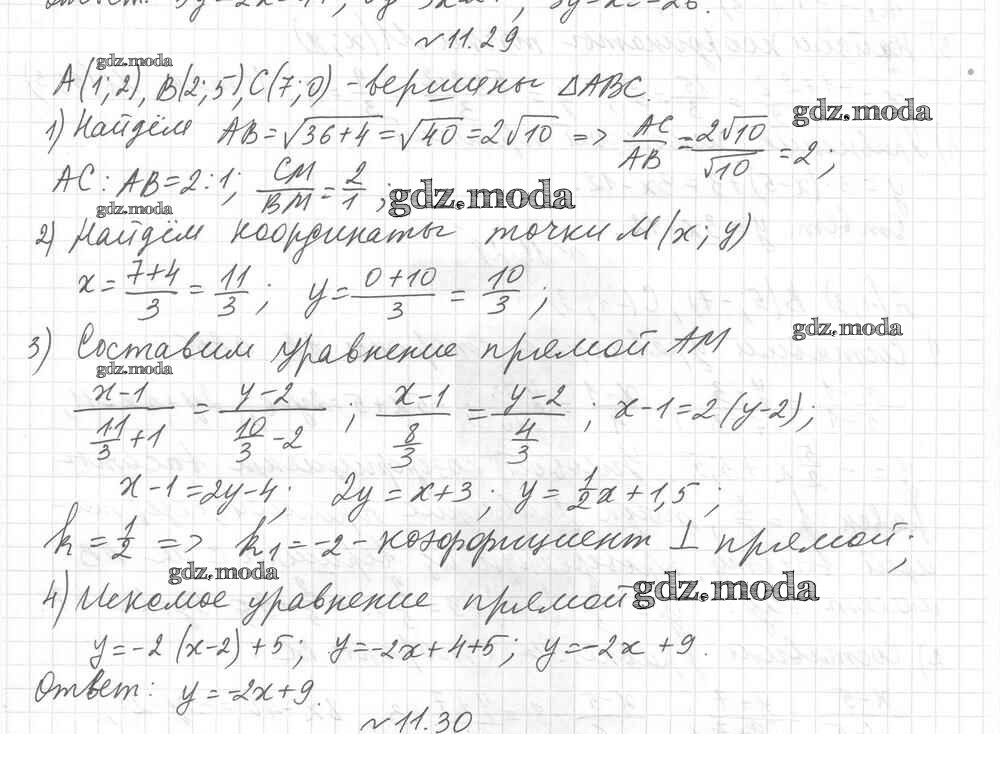 Ответ: 3y=2x-
№11.29
gdz.moda
A(1;2), B(2;5), C(7;0) - вершины ΔABC.
gdz.moda
1) Найдём AB=√36+4=√40=2√10 => AC/AB=2√10/√10=2;
AC:AB=2:1; CM/BM=2/1; gdz.moda
gdz.moda
2) Найдём координаты точки M(x;y)
x=7+4/3=11/3; y=0+10/3=10/3;
gdz.moda
3) Составим уравнение прямой AM
gdz.moda
x-1/11/3+1=y-2/10/3-2; x-1/8/3=y-2/4/3; x-1=2(y-2);
x-1=2y-4; 2y=x+3; y=1/2x+1,5;
k=1/2 => k₁=-2 - коэффициент ⊥ прямой;
gdz.moda
4) Искомое уравнение прямой gdz.moda
y=-2(x-2)+5; y=-2x+4+5; y=-2x+9.
Ответ: y=-2x+9.
№11.30